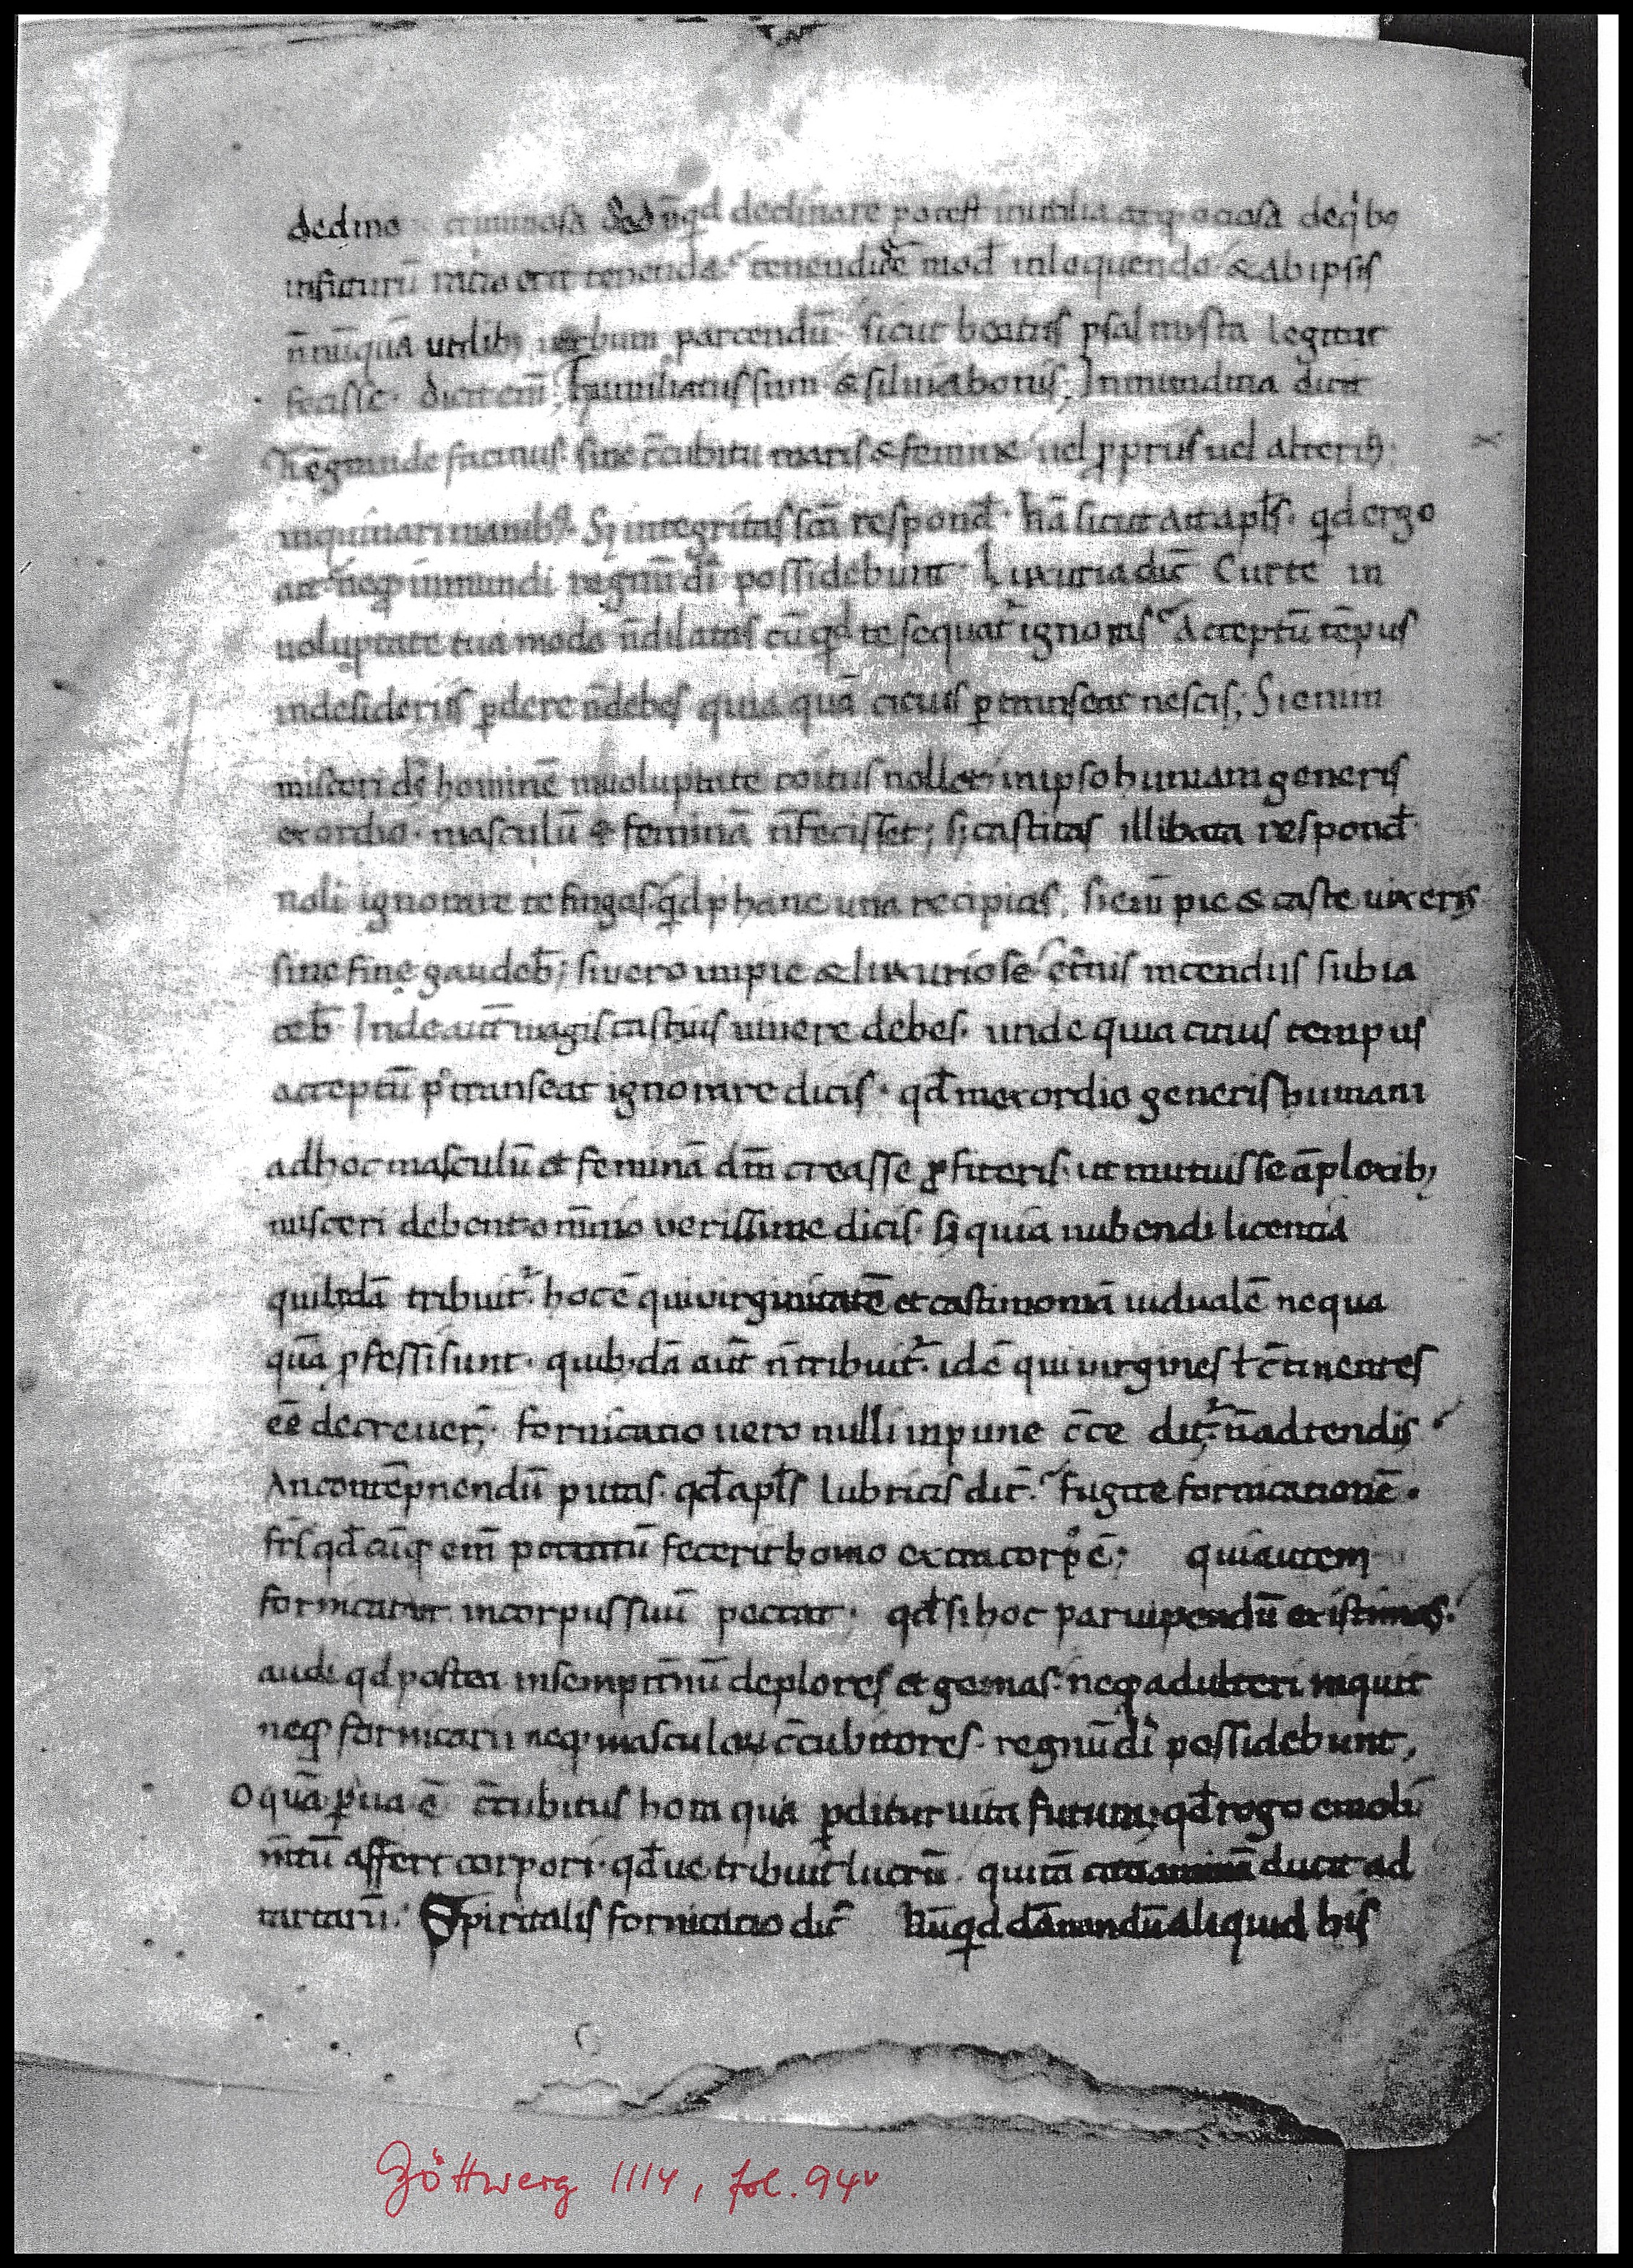 dedino criminosa Sed nūqd declinare potest inutilia atq; ociosa deqib;
infuturū ratio erit tenenda. tenendus ē mod inloquendo. & abipsis
n̄nūquā utilib; verbum parcendū. sicut beatus psalmista legitur
fecisse. dicit em̄; humiliatus sum & silui abonis; Inmundicia dicit
N̄ ē grande facinus. sine c̄cubitu maris & feminę uel ꝓpriis uel alteri;
inquinari manib;. Sꝫ integritas sc̄a respond̄. Nā sicut ait apls̄. qd ergo
ait neq; inmundi regnū dī possidebunt. Luxuria dic̄ Cur te in
uoluptate tua modo n̄ dilatas cū qd te sequat᷑ ignoras Acceptū tēpus
indesideriis ꝑdere n̄debes quia quā citius ꝑtranseat nescis; Si enim
misceri ds̄ hominē inuoluptate coitus nollet. inipso humani generis
exordio. masculū & feminā n̄fecisset; sꝫ castitas illibata respond̄.
noli ignorare te fingas. qd ꝑ hanc uita recipias. si eni pie & caste uixeris
sine fine gaudeb̄; si vero impie & luxuriose et̄nis incendiis subia
ceb̄ Inde aut̄ magis castius uiuere debes. unde quia citius tempus
acceptū ꝑtranseat ignorare dicis. qd̄ inexordio generis humani
adhoc masculū et feminā dm̄ creasse ꝓfiteris. ut mutuis se āplexib;
misceri debent om̄ino verissime dicis. sꝫ quia nubendi licencia
quib;dā tribuit᷑. hoc ē qui virginitatē et castimoniā uidualē nequa
quā ꝓfessi sunt. quib;dā aut̄ n̄tribuit᷑. id ē qui uirgines ł c̄tinentes
eē decreuer̄;. fornicatio uero nulli inpune c̄ce dit᷑. n̄ adtendis
An contēpnendū putas. qd̄ apls̄ lubricis dic̄. fugite fornicationē.
frs̄ qd̄cūq; em̄ peccatū fecerit homo extra corp; ē; qui autem
fornicatur incorpus suū peccat. qd̄ si hoc paruipendū existimas.
audi qd postea insempit̄nū deplores et gemas. neq; adulteri inquit
neq; fornicarii neq; masculoꝝ c̄cubitores. regnū dī possidebunt,
O quā ꝑua ē c̄cubitus hora qua ꝑditur uita futura; qd̄ rogo emoli
m̄tū affert corpori. qd̄ue tribuit lucrū. qui tā cito animā ducit ad
tartarū. Spiritalis fornicatio dic̄ Nūqd dānandū aliquid his
Göttweig 1114, fol. 94v